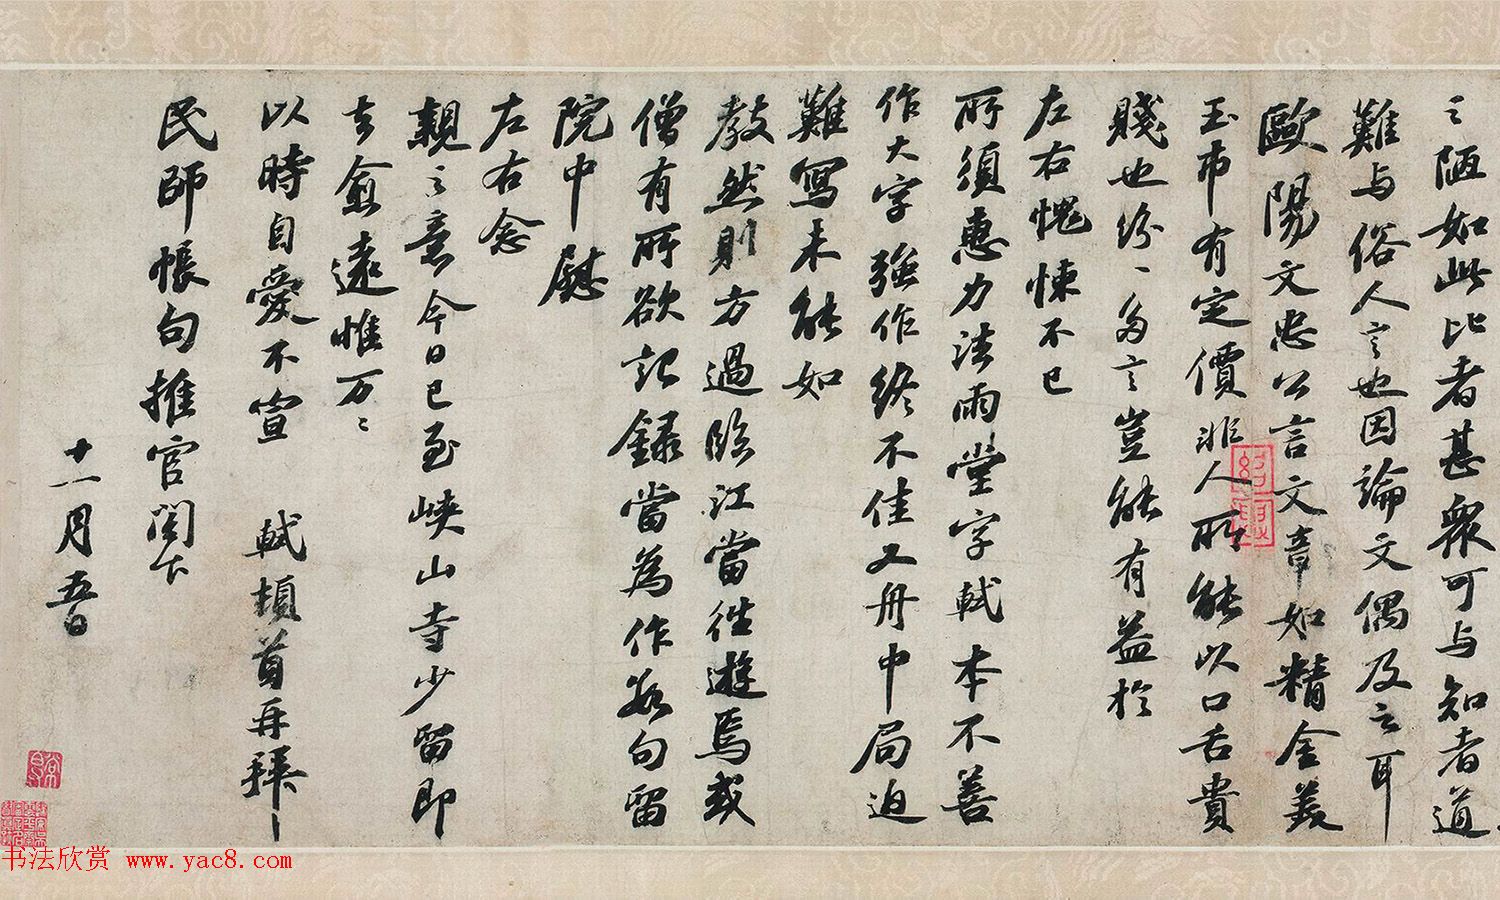 之陋如此比者甚衆可与知者道
難与俗人言也因論文偶及之耳
歐陽文忠公言文章如精金美
玉市有定價非人所能以口舌貴
賤也紛〻多言豈能有益於
左右愧悚不已
所須惠力法雨堂字軾本不善
作大字強作終不佳又舟中局迫
難寫未能如
教然則方過臨江當往遊焉或
僧有所欲記録當為作數句留
院中慰
左右念
親之意今日已至峽山寺少留即
去愈遠惟万〻
以時自愛不宣 軾頓首再拜
民師帳句推官閤下
十一月五日
书法欣赏 www.yac8.com